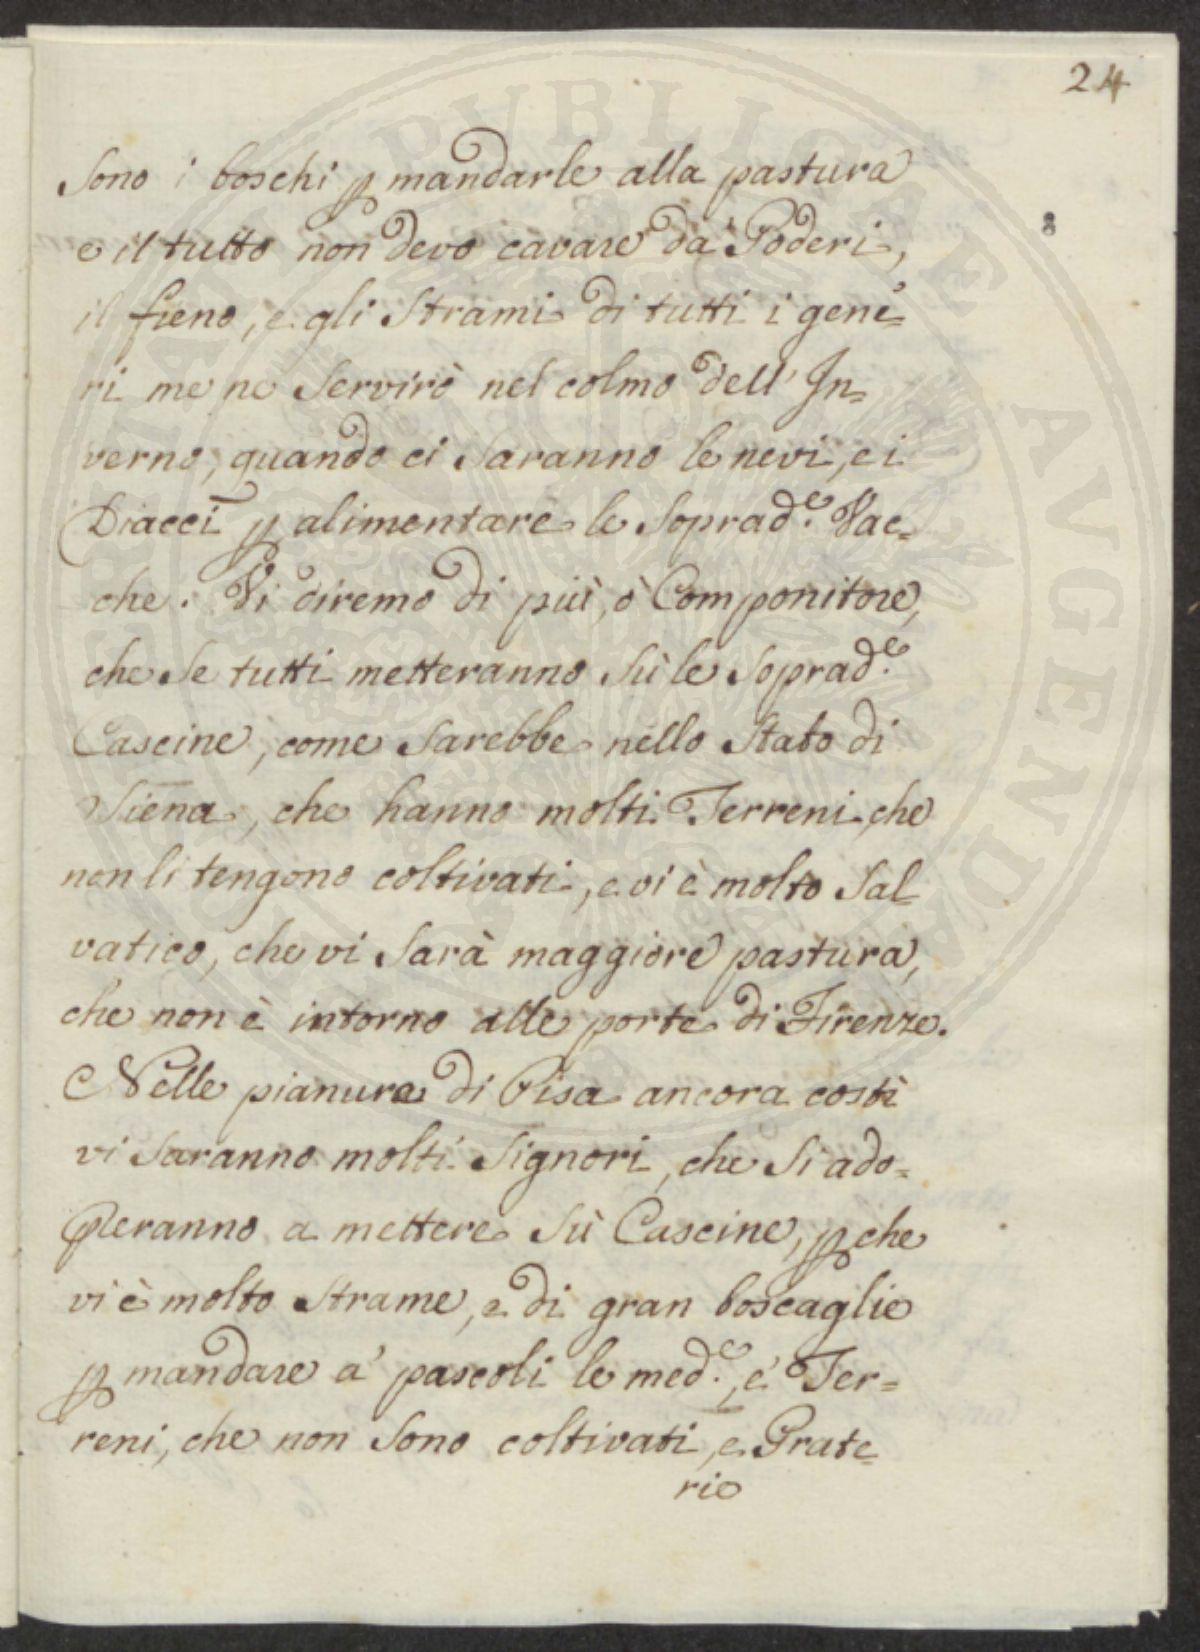 24
sono i boschi p mandarle alla pastura
e il tutto non devo cavare da' Poderi,
il fieno, e gli Strami di tutti i gene=
ri me ne servirò nel colmo dell' In=
verno, quando ci saranno le nevi, e i
Diacci p alimentare le sopradᵉ. Vac=
che. Vi diremo di più, ò Componitore,
che se tutti metteranno sù le sopradᵉ.
Cascine, come sarebbe nello Stato di
Siena, che hanno molti Terreni, che
non li tengono coltivati, e vi è molto sal=
vatico, che vi sarà maggiore pastura,
che non è intorno alle porte di Firenze.
Nelle pianure di Pisa ancora costì
vi saranno molti Signori, che si ado=
peranno a mettere sù Cascine, pche
vi è molto strame, e di gran boscaglie
p mandare a' pascoli le medᵉ., e' Ter=
reni, che non sono coltivati, e Prate=
rie
PUBLICAE AUGENDAE